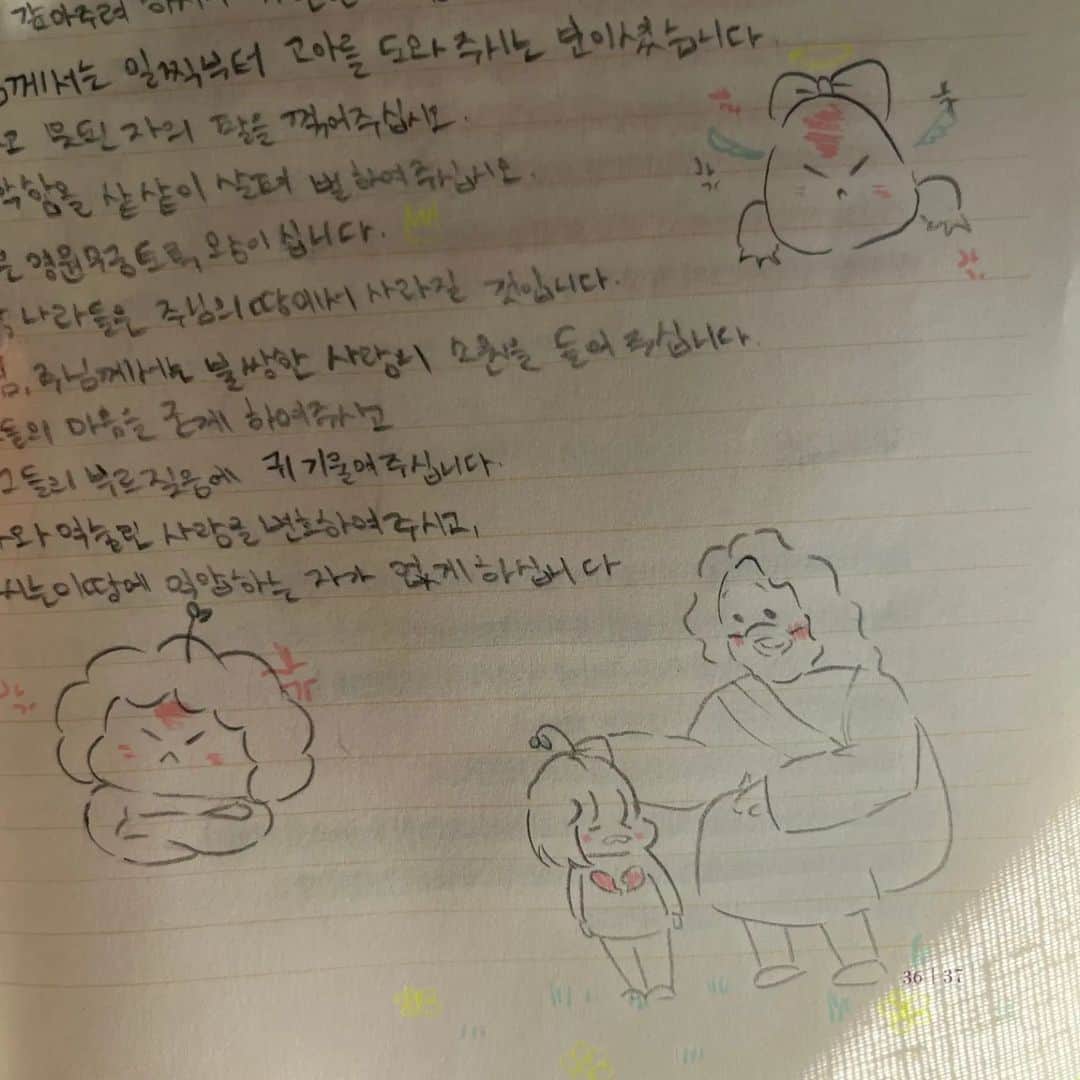 감아주려
께서는 일찍부터 고아를 도와 주시는 분이셨습니다
고 못된 자의 팔을 꺾어주십시오.
악함을 샅샅이 살펴 벌하여주십시오.
은 영원무궁토록 왕이십니다.
나라들은 주님의 땅에서 사라질 것입니다.
주님께서는 불쌍한 사람의 소원을 들어 주십니다.
들의 마음을 굳게 하여주시고
그들의 부르짖음에 귀 기울여주십니다.
와 억눌린 사람을 변호하여주시고,
시는 이 땅에 억압하는 자가 없게 하십니다
36 | 37